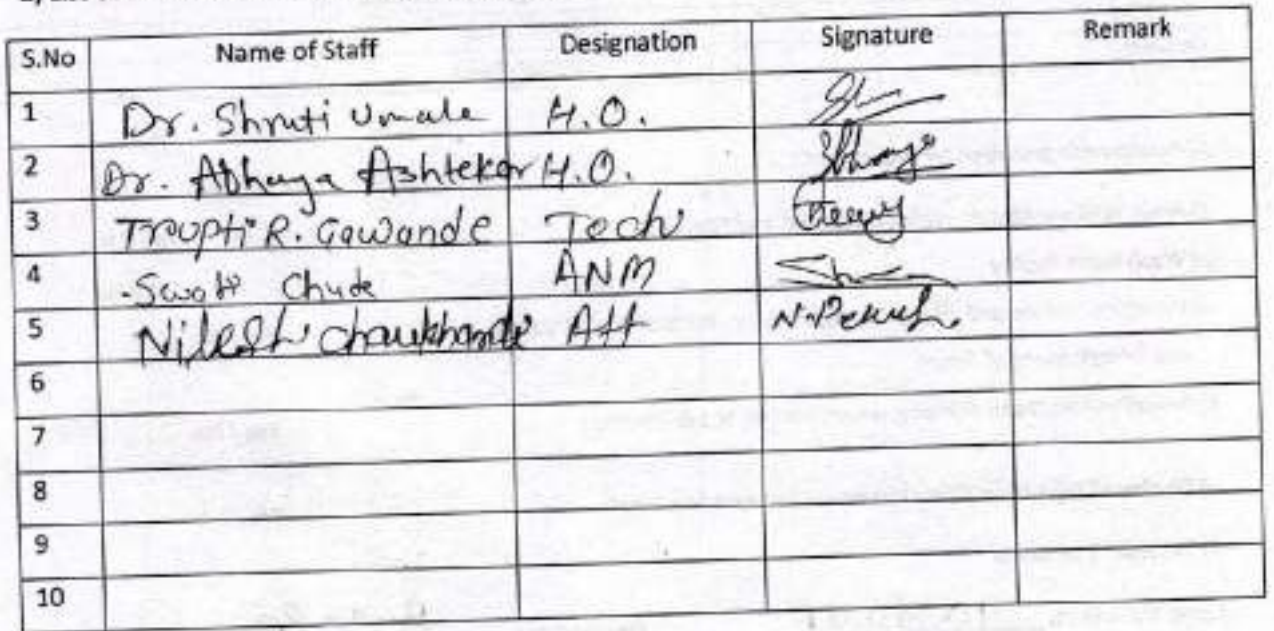 S.No Name of Staff Designation Signature Remark
1 Dr. Shruti Umale H.O.
2 Dr. Abhaya Ashtekar H.O.
3 Trupti R. Gawande Tech
4 Swati Chude ANM
5 Nilesh Chaukhande Att
6
7
8
9
10